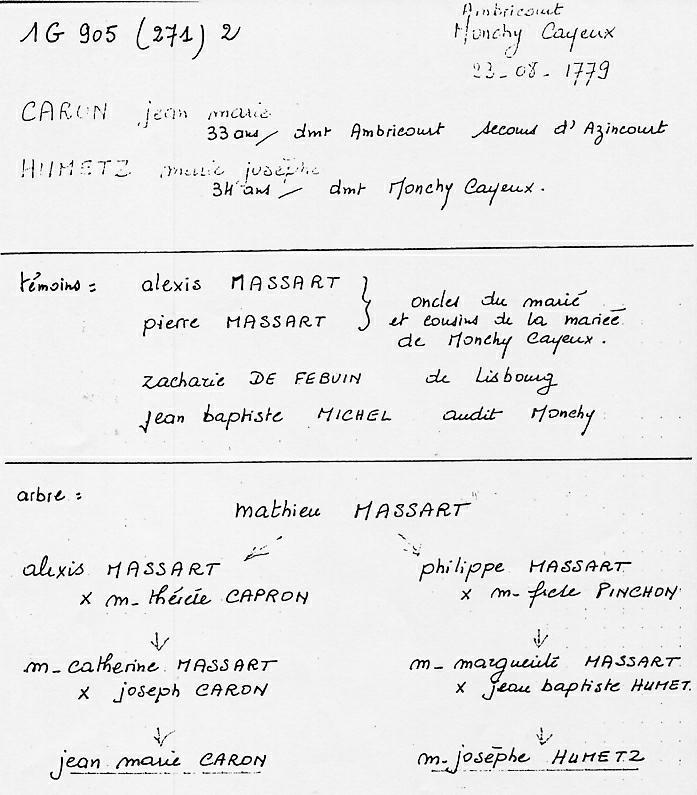 1G 905 (271) 2
Ambricourt
Monchy Cayeux
23-08-1779
CARON jean marie
33 ans / dmt Ambricourt secours d'Azincourt
HUMETZ marie josèphe
34 ans / dmt Monchy Cayeux.
témoins : alexis MASSART } oncles du marié
pierre MASSART et cousins de la mariée
de Monchy Cayeux.
zacharie DE FEBUIN de Lisbourg
jean baptiste MICHEL audit Monchy
arbre :
mathieu MASSART
alexis MASSART
x m-thérèse CAPRON
philippe MASSART
x m- PINCHON
m-catherine MASSART
x joseph CARON
m-marguerite MASSART
x jean baptiste HUMET.
jean marie CARON
m-josèphe HUMETZ